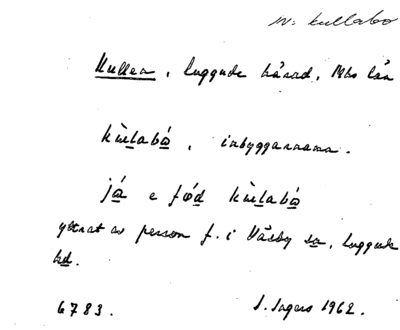 kullabo
Kullen, Luggude härad, Mhs län
kùlabó, inbyggarnamn.
já e fǿd kùlabó
yttrat av person f. i Väsby sn, Luggude
hd.
6783. S. Ingers 1962.